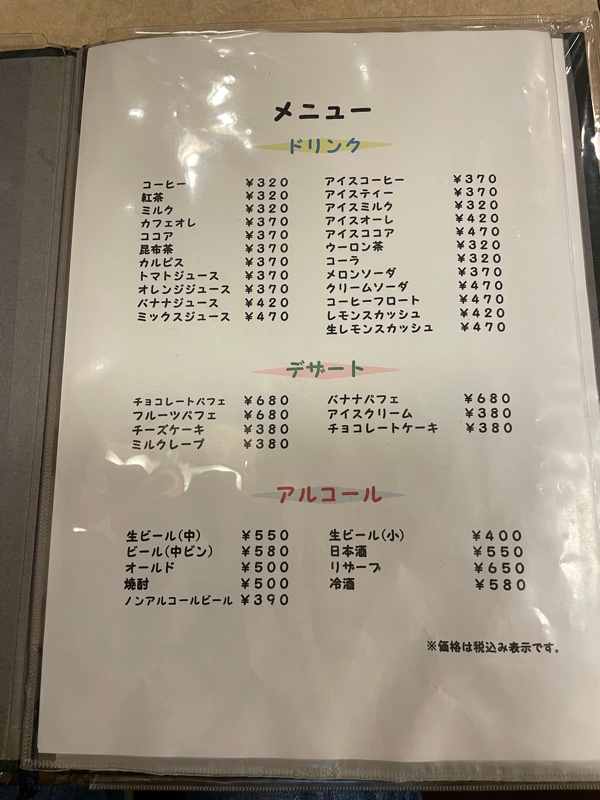 メニュー
ドリンク
コーヒー ¥320
紅茶 ¥320
ミルク ¥320
カフェオレ ¥370
ココア ¥370
昆布茶 ¥370
カルピス ¥370
トマトジュース ¥370
オレンジジュース ¥370
バナナジュース ¥420
ミックスジュース ¥470
アイスコーヒー ¥370
アイスティー ¥370
アイスミルク ¥320
アイスオーレ ¥420
アイスココア ¥470
ウーロン茶 ¥320
コーラ ¥320
メロンソーダ ¥370
クリームソーダ ¥470
コーヒーフロート ¥470
レモンスカッシュ ¥420
生レモンスカッシュ ¥470
デザート
チョコレートパフェ ¥680
フルーツパフェ ¥680
チーズケーキ ¥380
ミルクレープ ¥380
バナナパフェ ¥680
アイスクリーム ¥380
チョコレートケーキ ¥380
アルコール
生ビール(中) ¥550
ビール(中ビン) ¥580
オールド ¥500
焼酎 ¥500
ノンアルコールビール ¥390
生ビール(小) ¥400
日本酒 ¥550
リザーブ ¥650
冷酒 ¥580
※価格は税込み表示です。